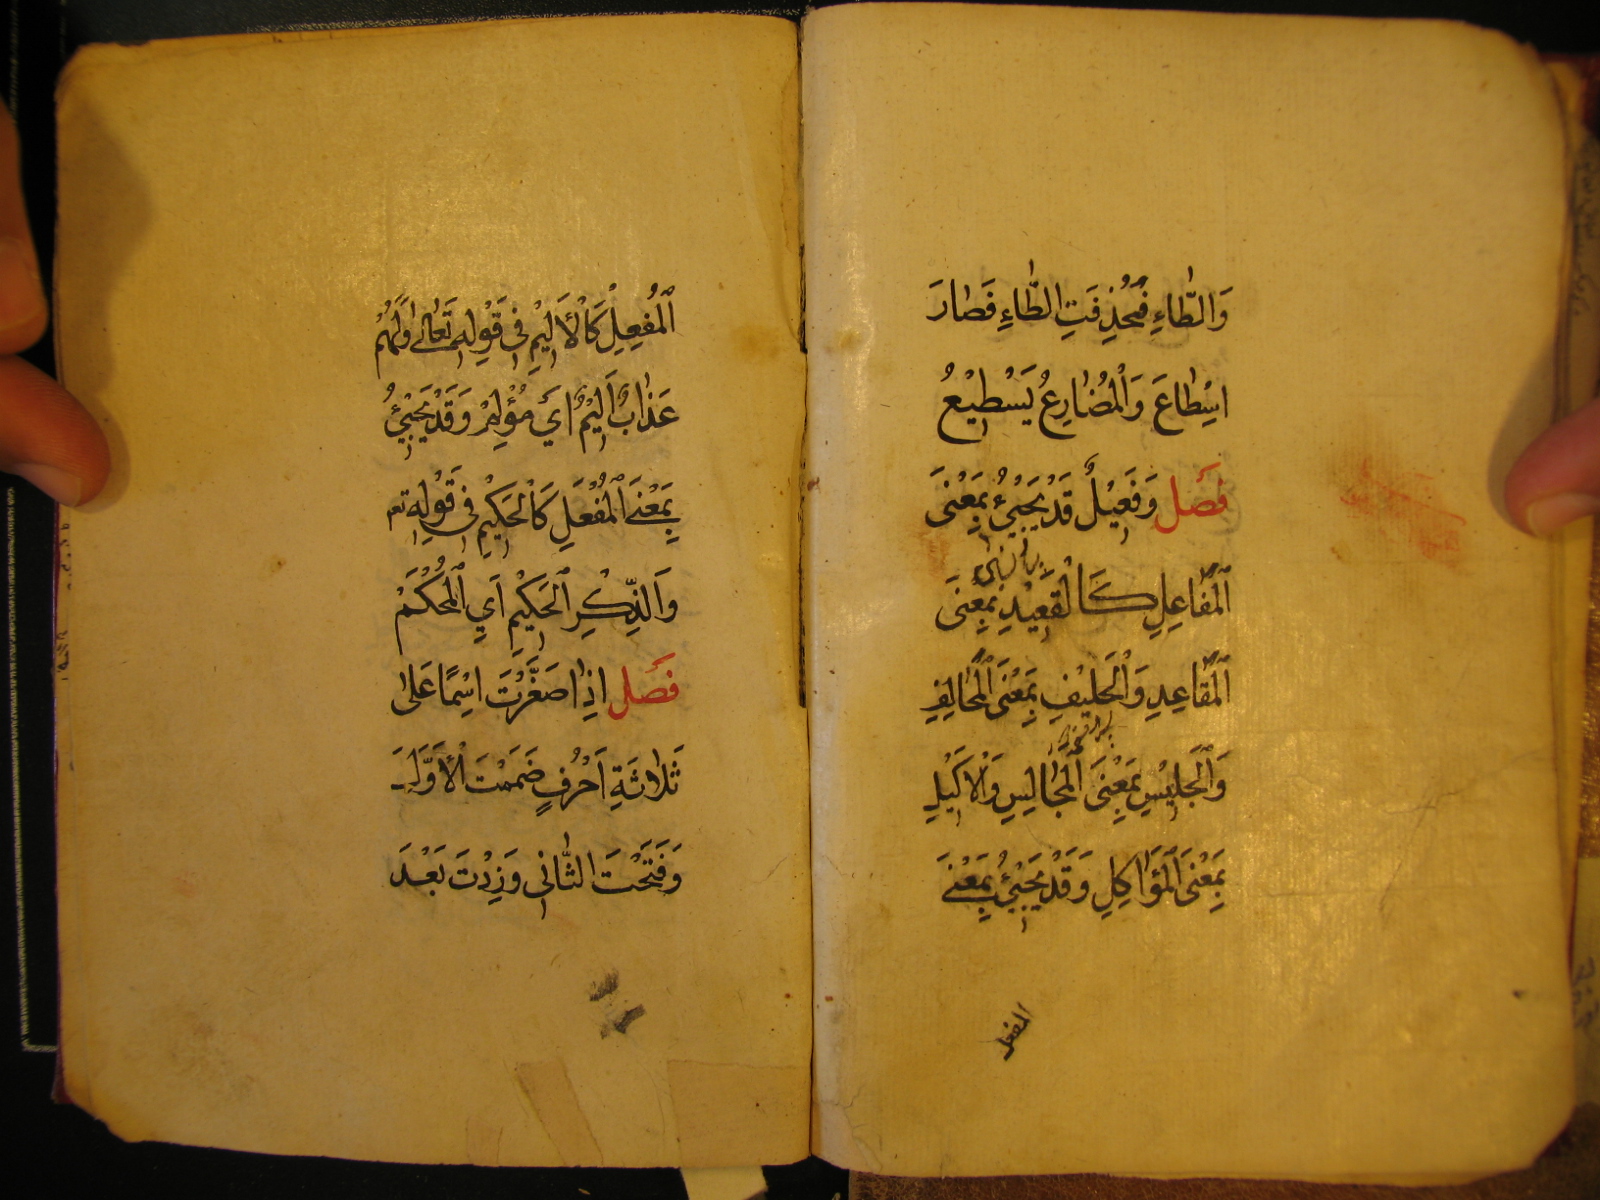 وَالطَّاءِ فَحُذِفَتِ الطَّاءُ فَصَارَ
اسْطَاعَ وَالْمُضَارِعُ يَسْطِيْعُ
فَصَل وَفَعِيْلٌ قَدْ يَجِيْئُ بِمَعْنَى
الْمُفَاعِلِ كَالْقَعِيْدِ بِمَعْنَى
الْمُقَاعِدِ وَالْحَلِيْفِ بِمَعْنَى الْمُحَالِفِ
وَالْجَلِيْسِ بِمَعْنَى الْمُجَالِسِ وَالْاَكِيْلِ
بِمَعْنَى الْمُؤَاكِلِ وَقَدْ يَجِيْئُ بِمَعْنَى
المفعل
الْمُفْعِلِ كَالْاَلِيْمِ فِى قَوْلِهِ تَعَالٰى وَلَهُمْ
عَذَابٌ اَلِيْمٌ اَيْ مُؤْلِمٌ وَقَدْ يَجِيْئُ
بِمَعْنَى الْمُفْعَلِ كَالْحَكِيْمِ فِى قَوْلِهِ تعم
وَالذِّكْرِ الْحَكِيْمِ اَيِ الْمُحْكَمْ
فَصَل اِذَا صَغَّرْتَ اِسْمًا عَلٰى
ثَلَاثَةِ اَحْرُفٍ ضَمَمْتَ الْاَوَّلَ
وَفَتَحْتَ الثَّانِى وَزِدْتَ بَعْدَ